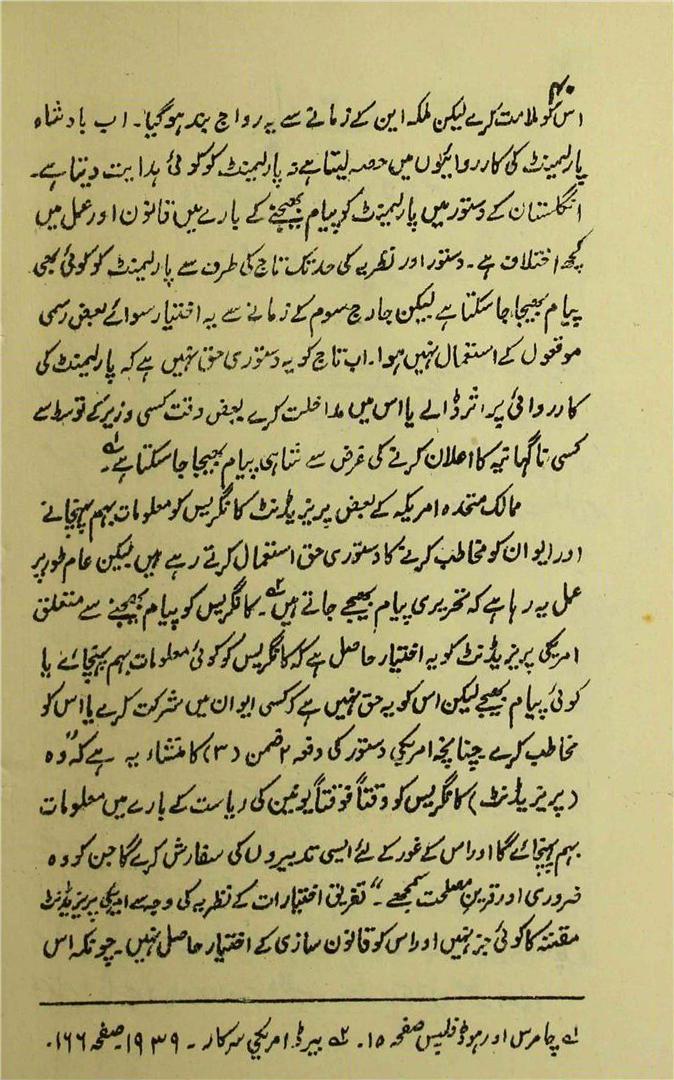 ۴۰
اس کو ملامت کرے لیکن ملکہ این کے زمانے سے یہ رواج بند ہوگیا۔ اب بادشاہ
پارلیمنٹ کی کارروائیوں میں حصہ لیتا ہے نہ پارلیمنٹ کو کوئی ہدایت دیتا ہے۔
انگلستان کے دستور میں پارلیمنٹ کو پیام بھیجنے کے بارے میں قانون اور عمل میں
کچھ اختلاف ہے۔ دستور اور نظریہ کی حد تک تاج کی طرف سے پارلیمنٹ کو کوئی بھی
پیام بھیجا جاسکتا ہے لیکن جارج سوم کے زمانے سے یہ اختیار سوائے بعض رسمی
موقعوں کے استعمال نہیں ہوا۔ اب تاج کو یہ دستوری حق نہیں ہے کہ پارلیمنٹ کی
کارروائی پر اثر ڈالے یا اس میں مداخلت کرے بعض وقت کسی وزیر کے توسط سے
کسی ناگہانیہ کا اعلان کرنے کی غرض سے شاہی پیام بھیجا جاسکتا ہے۱؎۔
ممالک متحدہ امریکہ کے بعض پریزیڈنٹ کانگریس کو معلومات بہم پہنچانے
اور ایوان کو مخاطب کرنے کا دستوری حق استعمال کرتے رہے ہیں لیکن عام طور پر
عمل یہ رہا ہے کہ تحریری پیام بھیجے جاتے ہیں۲؎۔ کانگریس کو پیام بھیجنے سے متعلق
امریکی پریزیڈنٹ کو یہ اختیار حاصل ہے کہ کانگریس کو کوئی معلومات بہم پہنچائے یا
کوئی پیام بھیجے لیکن اس کو یہ حق نہیں ہے کہ کسی ایوان میں شرکت کرے یا اس کو
مخاطب کرے چنانچہ امریکی دستور کی دفعہ ۲ ضمن (۳) کا منشاء یہ ہے کہ "وہ
(پریزیڈنٹ) کانگریس کو وقتاً فوقتاً یونین کی ریاست کے بارے میں معلومات
بہم پہنچائے گا اور اس کے غور کے لئے ایسی تدبیروں کی سفارش کرے گا جن کو وہ
ضروری اور قرین مصلحت سمجھے۔" تفریق اختیارات کے نظریہ کی وجہ سے امریکی پریزیڈنٹ
مقننہ کا کوئی جز نہیں اور اس کو قانون سازی کے اختیار حاصل نہیں۔ چونکہ اس
۱؎ چامرس اور ہوڈ فلپس صفحہ ۱۵۔ ۲؎ بیرڈ امریکی سرکار۔ ۱۹۳۹۔ صفحہ ۱۶۶۔